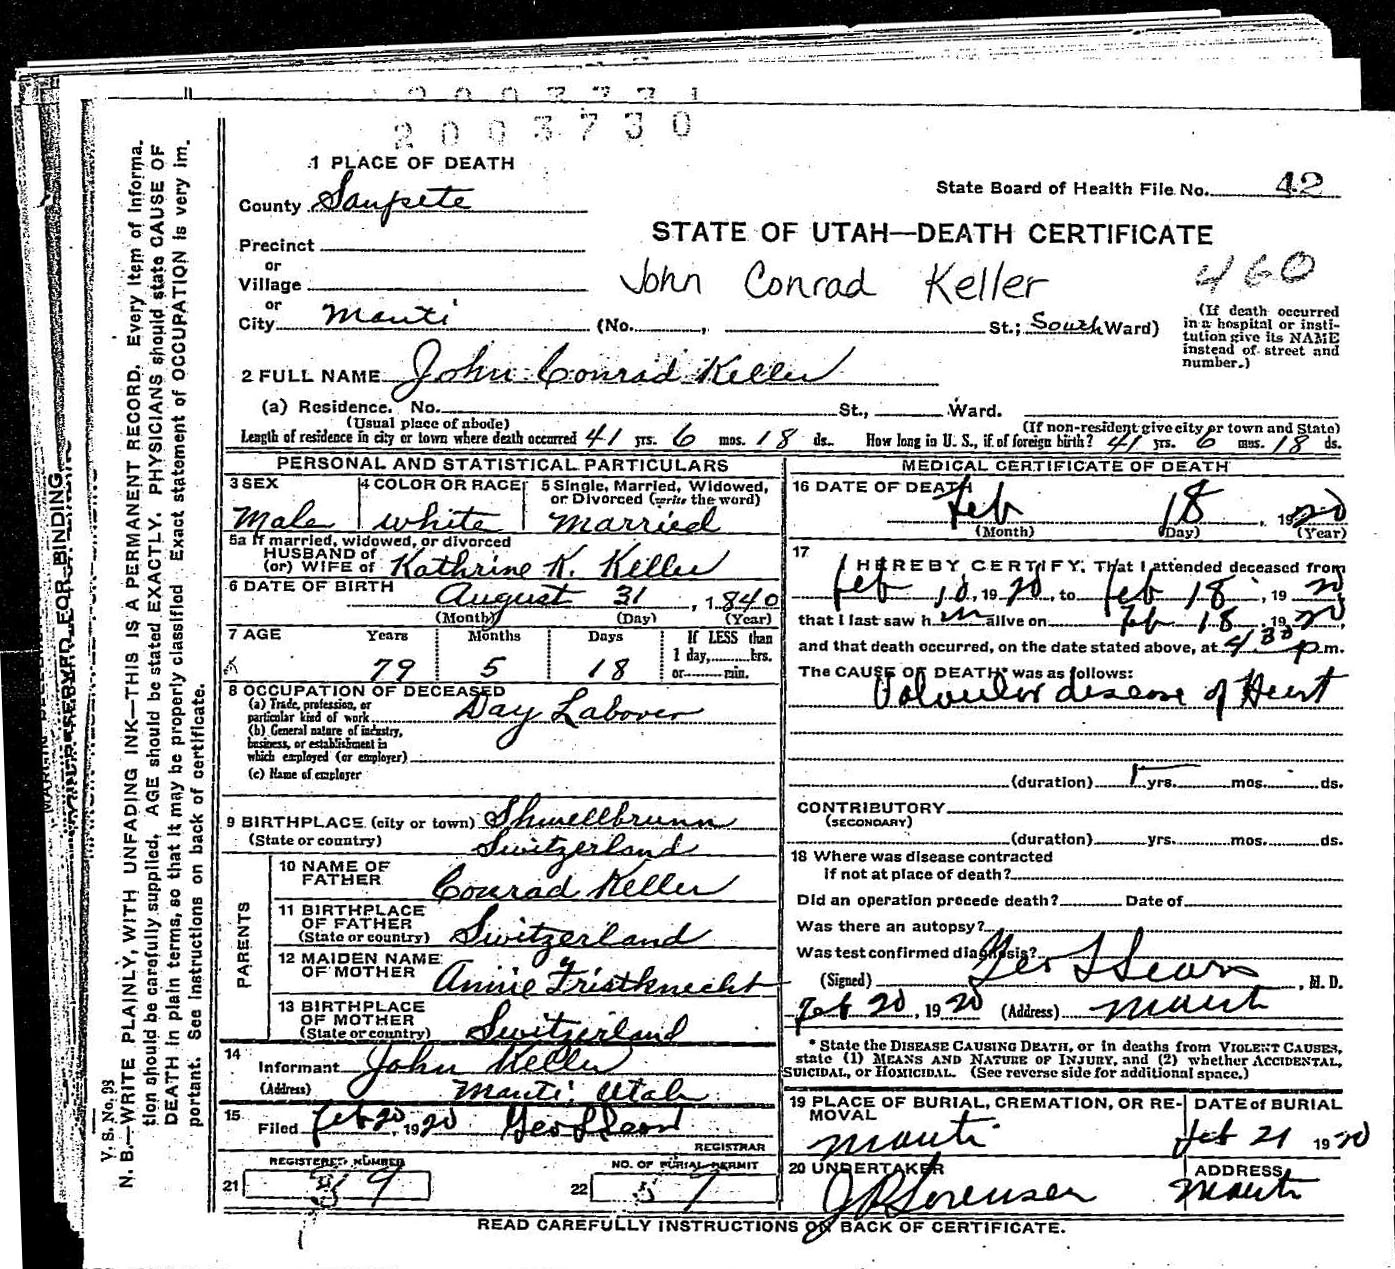 2003730
1 PLACE OF DEATH
State Board of Health File No. 42
County Sanpete
STATE OF UTAH—DEATH CERTIFICATE
Precinct
or
Village
John Conrad Keller
460
or
City Manti (No. , St.; South Ward)
(If death occurred in a hospital or insti-
tution give its NAME instead of street and number.)
2 FULL NAME John Conrad Keller
(a) Residence. No. St., Ward.
(Usual place of abode) (If non-resident give city or town and State)
Length of residence in city or town where death occurred 41 yrs. 6 mos. 18 ds. How long in U. S., if of foreign birth? 41 yrs. 6 mos. 18 ds.
PERSONAL AND STATISTICAL PARTICULARS
3 SEX 4 COLOR OR RACE 5 Single, Married, Widowed, or Divorced (write the word)
Male white Married
5a If married, widowed, or divorced
HUSBAND of
(or) WIFE of Kathrine K. Keller
6 DATE OF BIRTH August 31, 1840
(Month) (Day) (Year)
7 AGE Years Months Days If LESS than
1 day, hrs.
or min.
79 5 18
8 OCCUPATION OF DECEASED
(a) Trade, profession, or
particular kind of work Day Laborer
(b) General nature of industry,
business, or establishment in
which employed (or employer)
(c) Name of employer
9 BIRTHPLACE (city or town) Shwellbrunn
(State or country) Switzerland
PARENTS
10 NAME OF
FATHER Conrad Keller
11 BIRTHPLACE
OF FATHER
(State or country) Switzerland
12 MAIDEN NAME
OF MOTHER Annie Fristknecht
13 BIRTHPLACE
OF MOTHER
(State or country) Switzerland
14
Informant John Keller
(Address) Manti Utah
15
Filed Feb 20, 1920
REGISTRAR
REGISTERED NUMBER
21
NO. OF BURIAL PERMIT
22
MEDICAL CERTIFICATE OF DEATH
16 DATE OF DEATH
Feb 18, 1920
(Month) (Day) (Year)
17
I HEREBY CERTIFY, That I attended deceased from
Feb 10, 1920, to Feb 18, 1920
that I last saw him alive on Feb 18, 1920,
and that death occurred, on the date stated above, at 4 30 p.m.
The CAUSE OF DEATH* was as follows:
Valvular disease of Heart
(duration) yrs. mos. ds.
CONTRIBUTORY
(SECONDARY)
(duration) yrs. mos. ds.
18 Where was disease contracted
if not at place of death?
Did an operation precede death? Date of
Was there an autopsy?
Was test confirmed diagnosis?
(Signed) Geo L Sears, M. D.
Feb 20, 1920 (Address) Manti
* State the DISEASE CAUSING DEATH, or in deaths from VIOLENT CAUSES,
state (1) MEANS AND NATURE OF INJURY, and (2) whether ACCIDENTAL,
SUICIDAL, or HOMICIDAL. (See reverse side for additional space.)
19 PLACE OF BURIAL, CREMATION, OR RE-
MOVAL
Manti
DATE of BURIAL
Feb 21 1920
20 UNDERTAKER
J P Sorensen
ADDRESS
Manti
READ CAREFULLY INSTRUCTIONS ON BACK OF CERTIFICATE.
V. S. No. 98
N. B.—WRITE PLAINLY, WITH UNFADING INK—THIS IS A PERMANENT RECORD. Every item of informa-
tion should be carefully supplied. AGE should be stated EXACTLY. PHYSICIANS should state CAUSE OF
DEATH in plain terms, so that it may be properly classified. Exact statement of OCCUPATION is very im-
portant. See instructions on back of certificate.